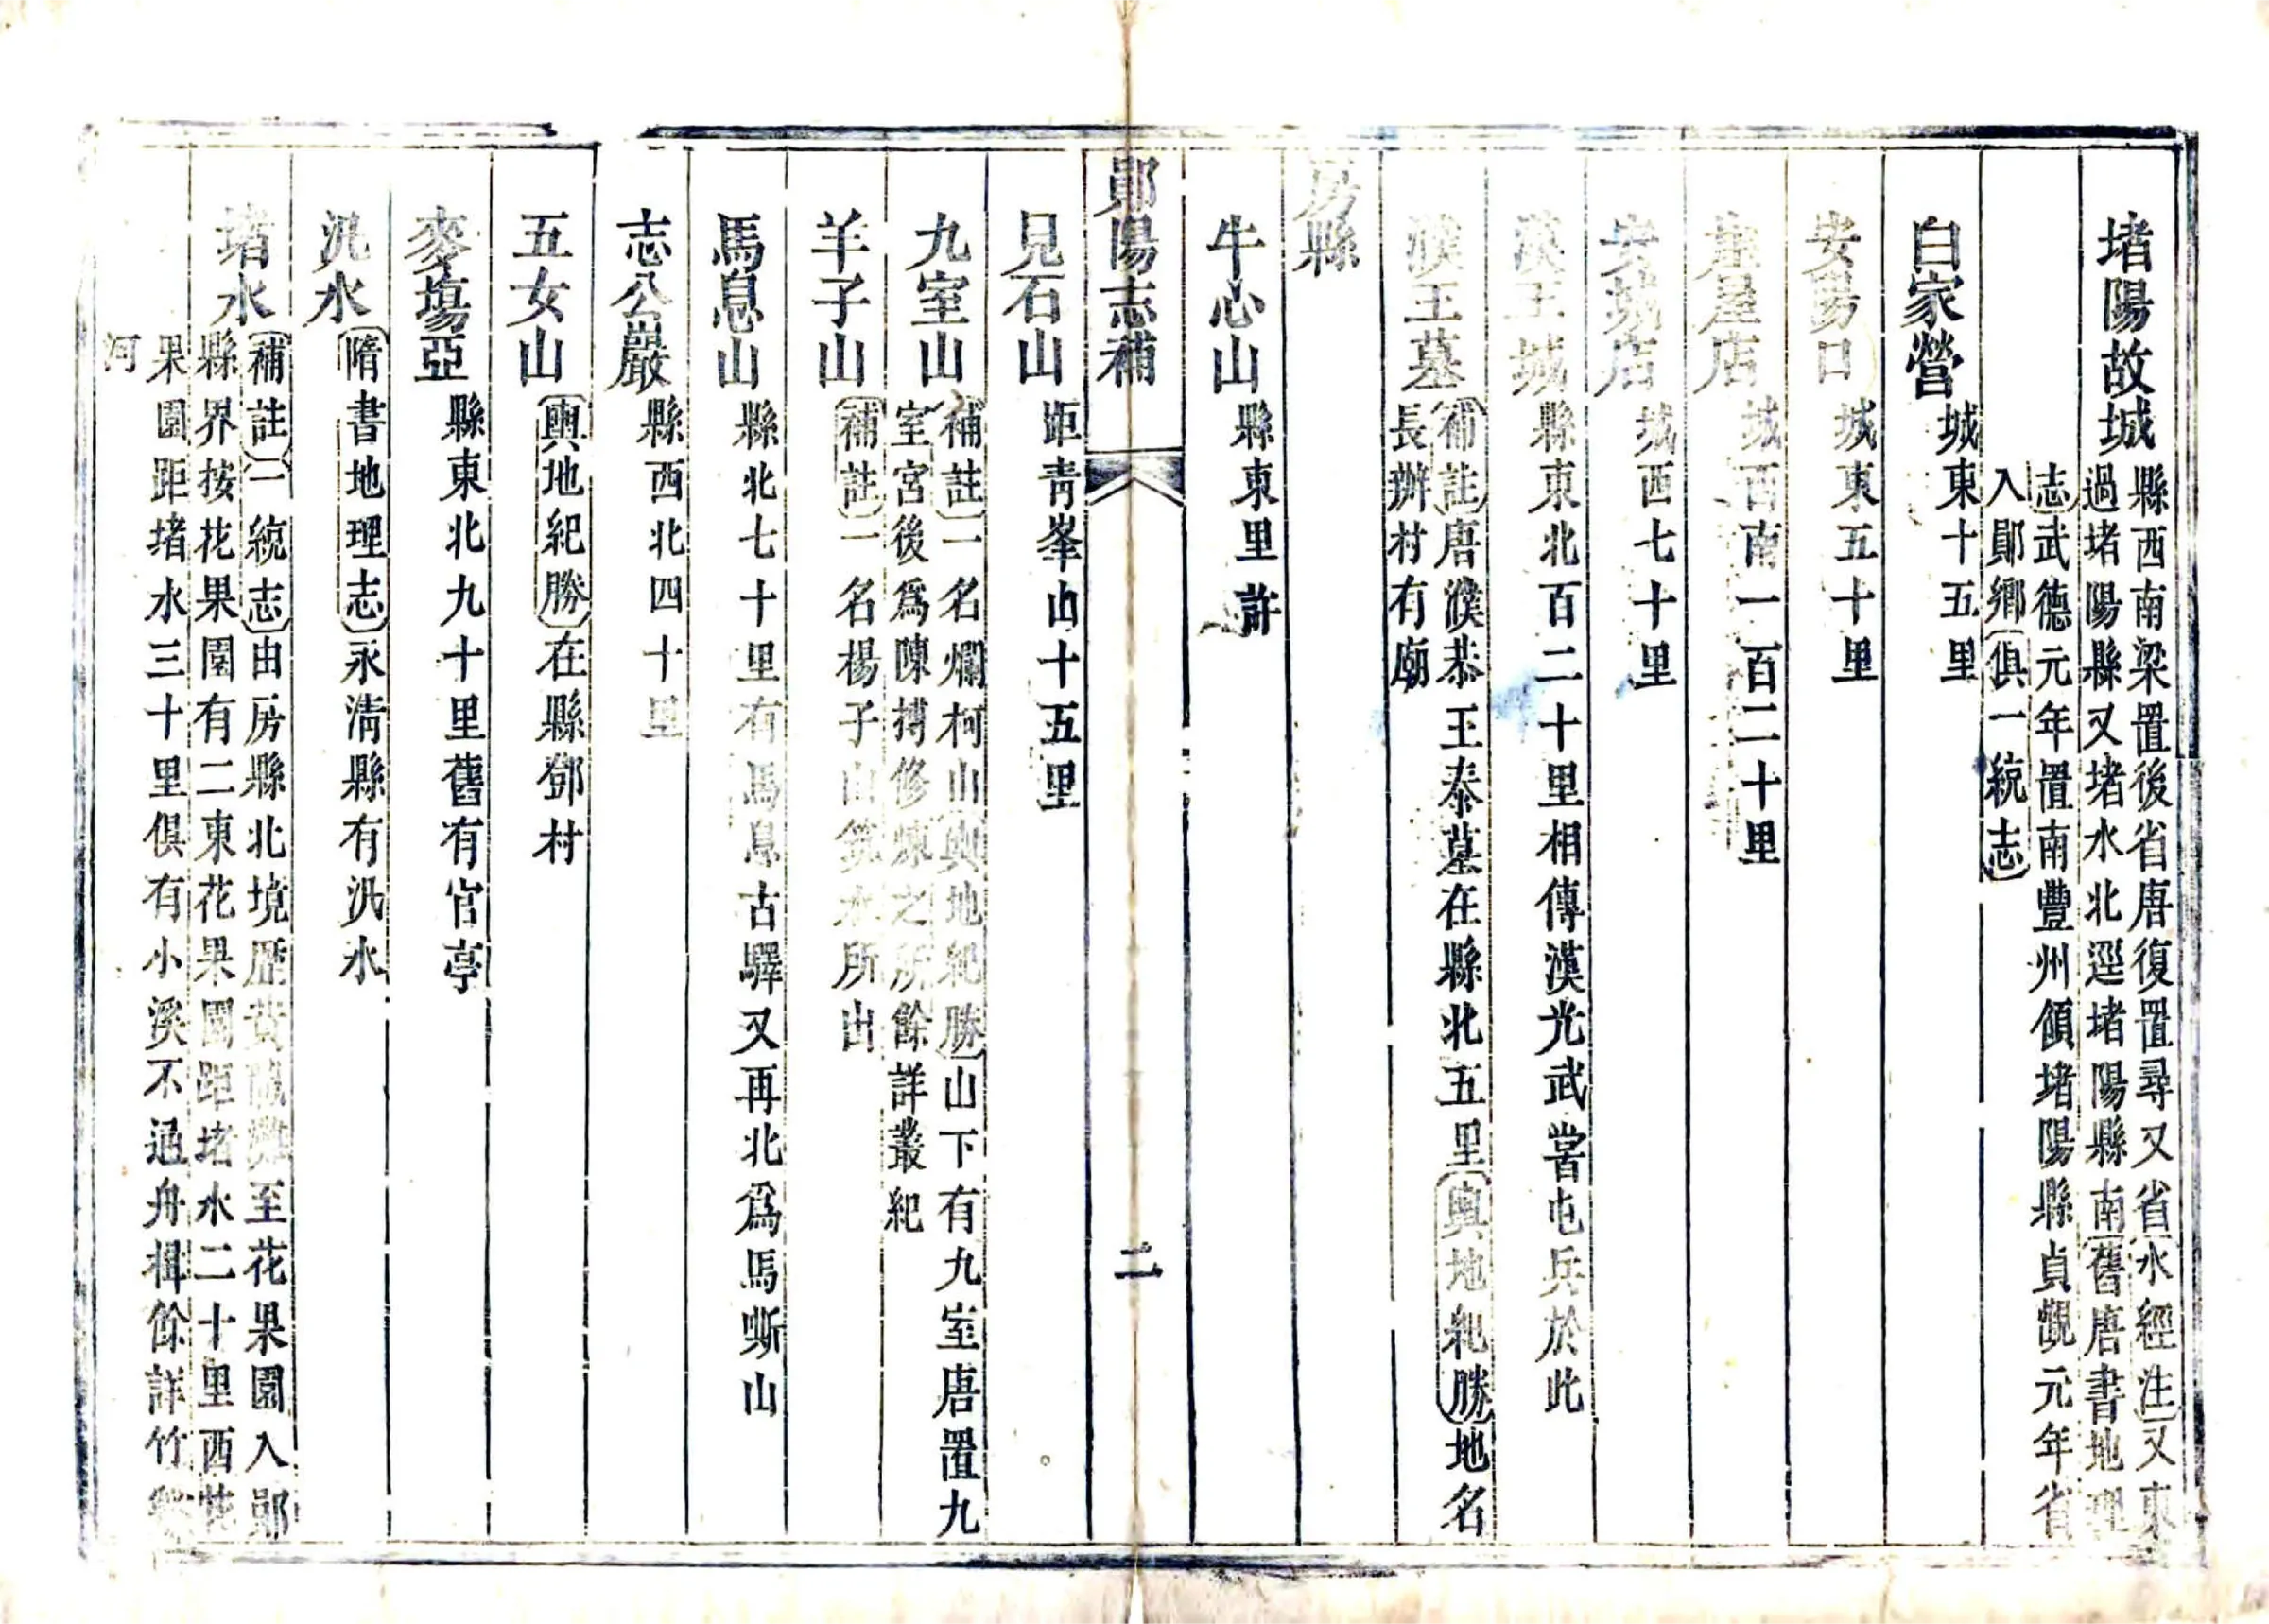 堵陽故城
縣西南梁置後省唐復置尋又省水經注又東
過堵陽縣又堵水北逕堵陽縣南舊唐書地理
志武德元年置南豐州領堵陽縣貞觀元年省
入鄖鄉俱一統志
白家營 城東十五里
安陽口 城東五十里
屋店 城西南一百二十里
安城店 城西七十里
漢王城 縣東北百二十里相傳漢光武嘗屯兵於此
濮王墓
補註唐濮恭王泰墓在縣北五里輿地紀勝地名
長辦村有廟
房縣
牛心山 縣東里許
鄖陽志補 二
見石山 距靑峯山十五里
九室山
補註一名爛柯山輿地紀勝山下有九室唐置九
室宮後爲陳摶修煉之所餘詳叢紀
羊子山 補註一名楊子山筑水所出
馬息山 縣北七十里有馬息古驛又再北爲馬嘶山
志公巖 縣西北四十里
五女山 輿地紀勝在縣鄧村
麥塲亞 縣東北九十里舊有官亭
汎水 隋書地理志永淸縣有汎水
堵水
補註一統志由房縣北境歷黃灘至花果園入鄖
縣界按花果園有二東花果園距堵水二十里西花
果園距堵水三十里俱有小溪不通舟楫餘詳竹
河